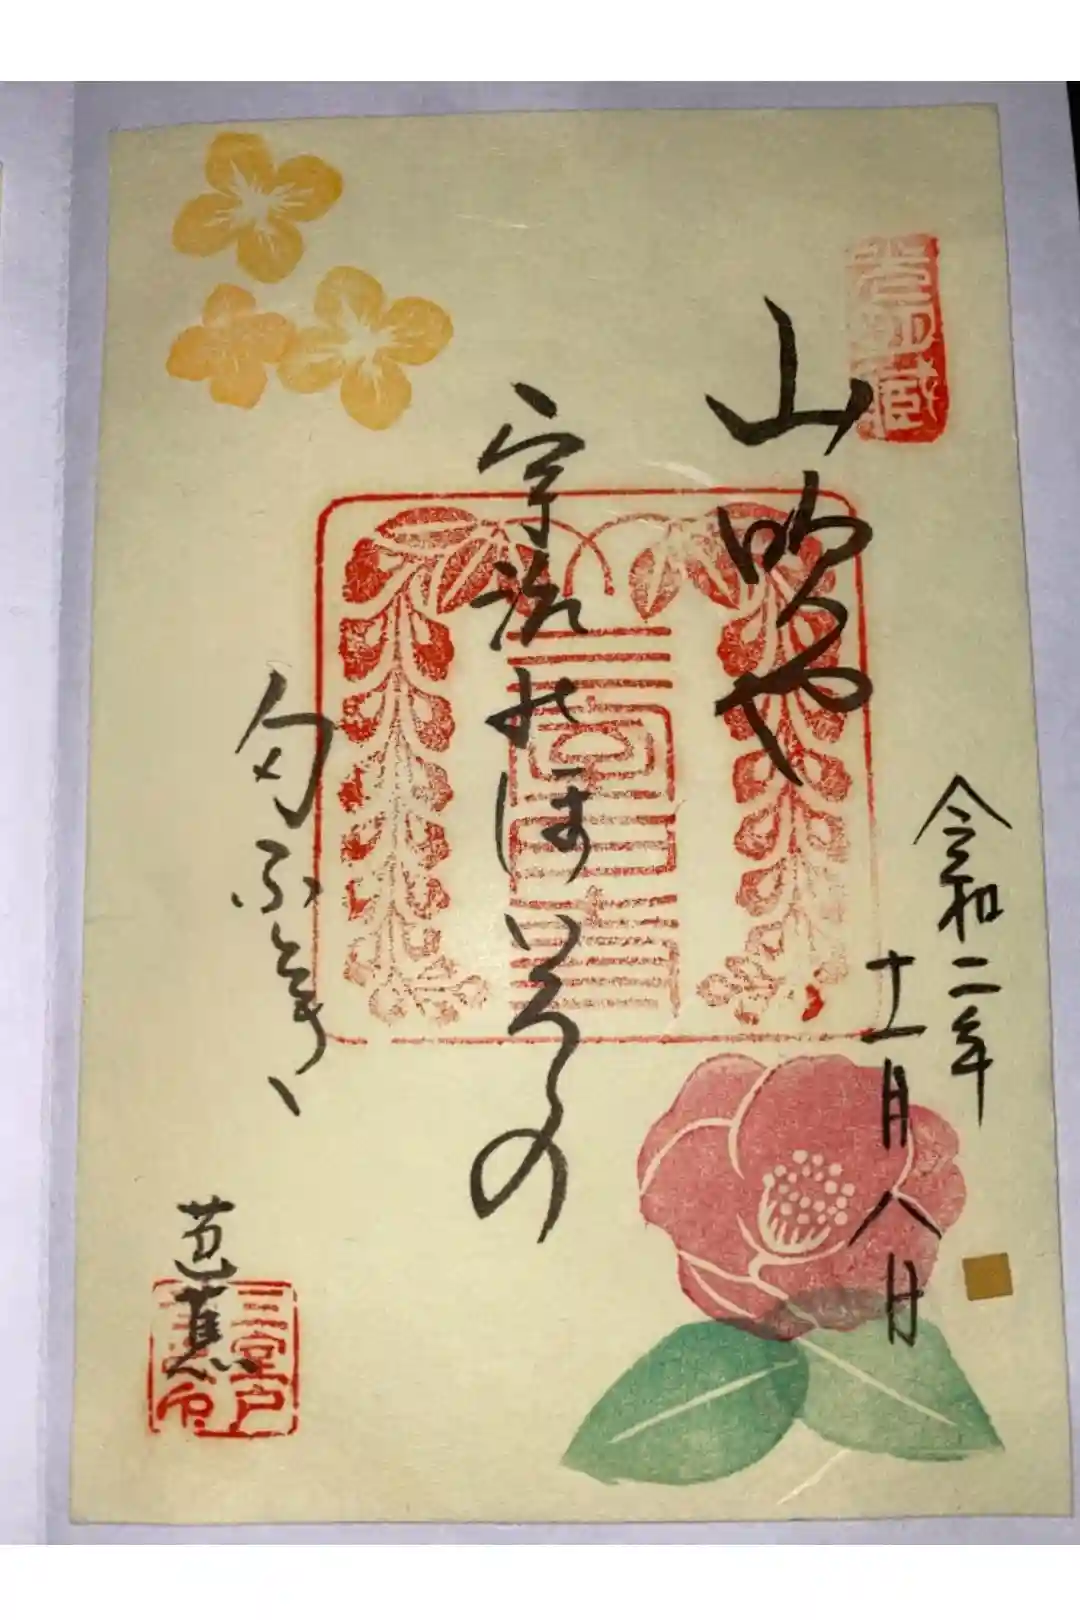 令和二年
十一月八日
山吹や
宇治のほいろの
匂ふとき
芭蕉
三室戸